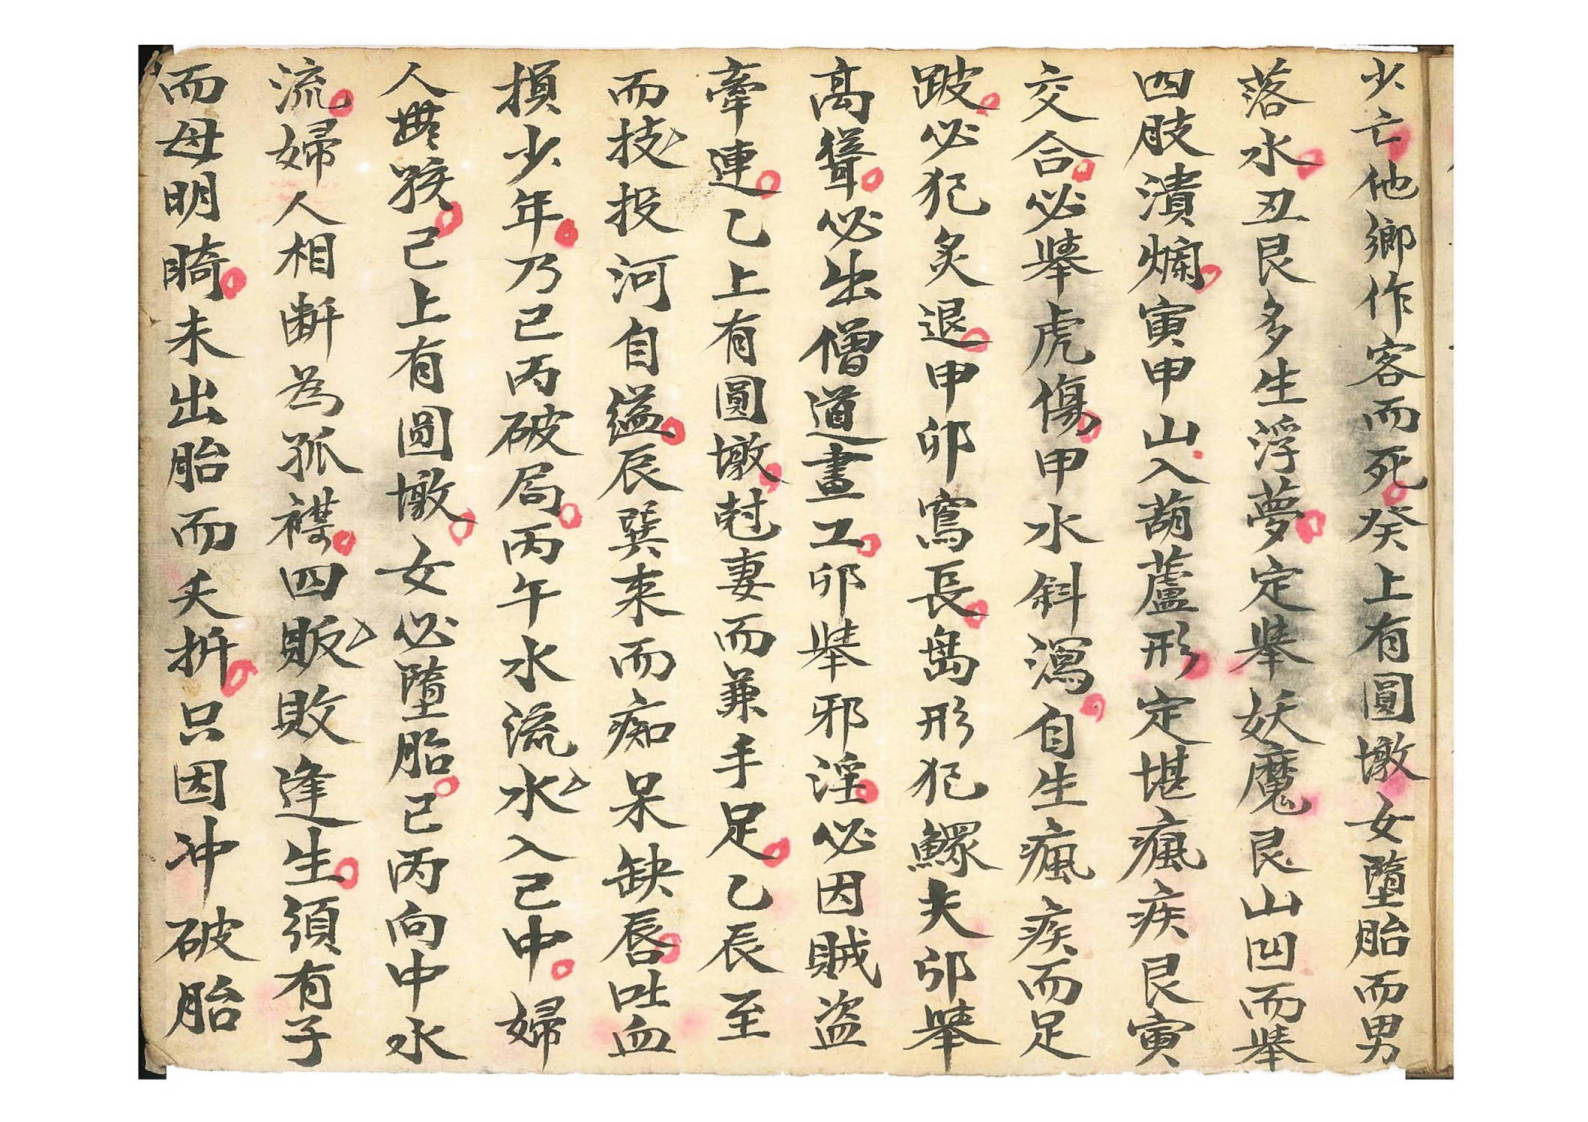 少亡他鄉作客而死癸上有圓墩女墮胎而男
落水丑艮多生浮夢定犖妖魔艮山凹而犖
四肢潰爛寅甲山入葫蘆形定堪瘋疾艮寅
交合必犖虎傷甲水斜瀉自生瘋疾而足
跛必犯炙退申卯窵長島形犯鰥夫卯犖
高聳必出僧道畫工卯犖邪淫必因賊盗
牽連乙上有圓墩尅妻而兼手足乙辰至
而技投河自縊辰巽来而痴呆缺唇吐血
損少年乃巳丙破局丙午水流水入己中婦
人無孩己上有圓墩女必墮胎巳丙向中水
流婦人相断為孤襟四販敗逢生須有子
而母明𬀩未出胎而夭折只因冲破胎